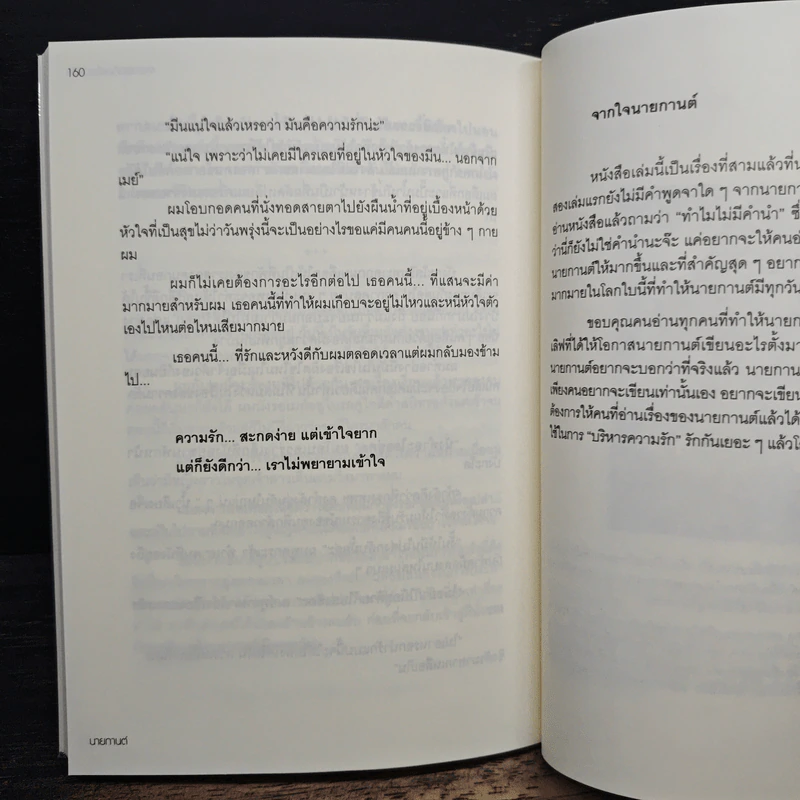 160
“มีนแน่ใจแล้วเหรอว่า มันคือความรักน่ะ”
“แน่ใจ เพราะว่าไม่เคยมีใครเลยที่อยู่ในหัวใจของมีน... นอกจาก
เมย์”
ผมโอบกอดคนที่นั่งทอดสายตาไปยังผืนน้ำที่อยู่เบื้องหน้าด้วย
หัวใจที่เป็นสุขไม่ว่าวันพรุ่งนี้จะเป็นอย่างไรขอแค่มีคนคนนี้อยู่ข้าง ๆ กาย
ผม
ผมก็ไม่เคยต้องการอะไรอีกต่อไป เธอคนนี้... ที่แสนจะมีค่า
มากมายสำหรับผม เธอคนนี้ที่ทำให้ผมเกือบจะอยู่ไม่ไหวและหนีหัวใจตัว
เองไปไหนต่อไหนเสียมากมาย
เธอคนนี้... ที่รักและหวังดีกับผมตลอดเวลาแต่ผมกลับมองข้าม
ไป...
ความรัก... สะกดง่าย แต่เข้าใจยาก
แต่ก็ยังดีกว่า... เราไม่พยายามเข้าใจ
นายกานต์
จากใจนายกานต์
หนังสือเล่มนี้เป็นเรื่องที่สามแล้วที่น
สองเล่มแรกยังไม่มีคำพูดจาใด ๆ จากนายกา
อ่านหนังสือแล้วถามว่า “ทำไมไม่มีคำนำ” ซึ่
ว่านี่ก็ยังไม่ใช่คำนำนะจ๊ะ แค่อยากจะให้คนอ่
นายกานต์ให้มากขึ้นและที่สำคัญสุด ๆ อยาก
มากมายในโลกใบนี้ที่ทำให้นายกานต์มีทุกวัน
ขอบคุณคนอ่านทุกคนที่ทำให้นายก
เลิฟที่ได้ให้โอกาสนายกานต์เขียนอะไรตั้งมา
นายกานต์อยากจะบอกว่าที่จริงแล้ว นายกาน
เพียงคนอยากจะเขียนเท่านั้นเอง อยากจะเขียน
ต้องการให้คนที่อ่านเรื่องของนายกานต์แล้วได้
ใช้ในการ “บริหารความรัก” รักกันเยอะ ๆ แล้วโ